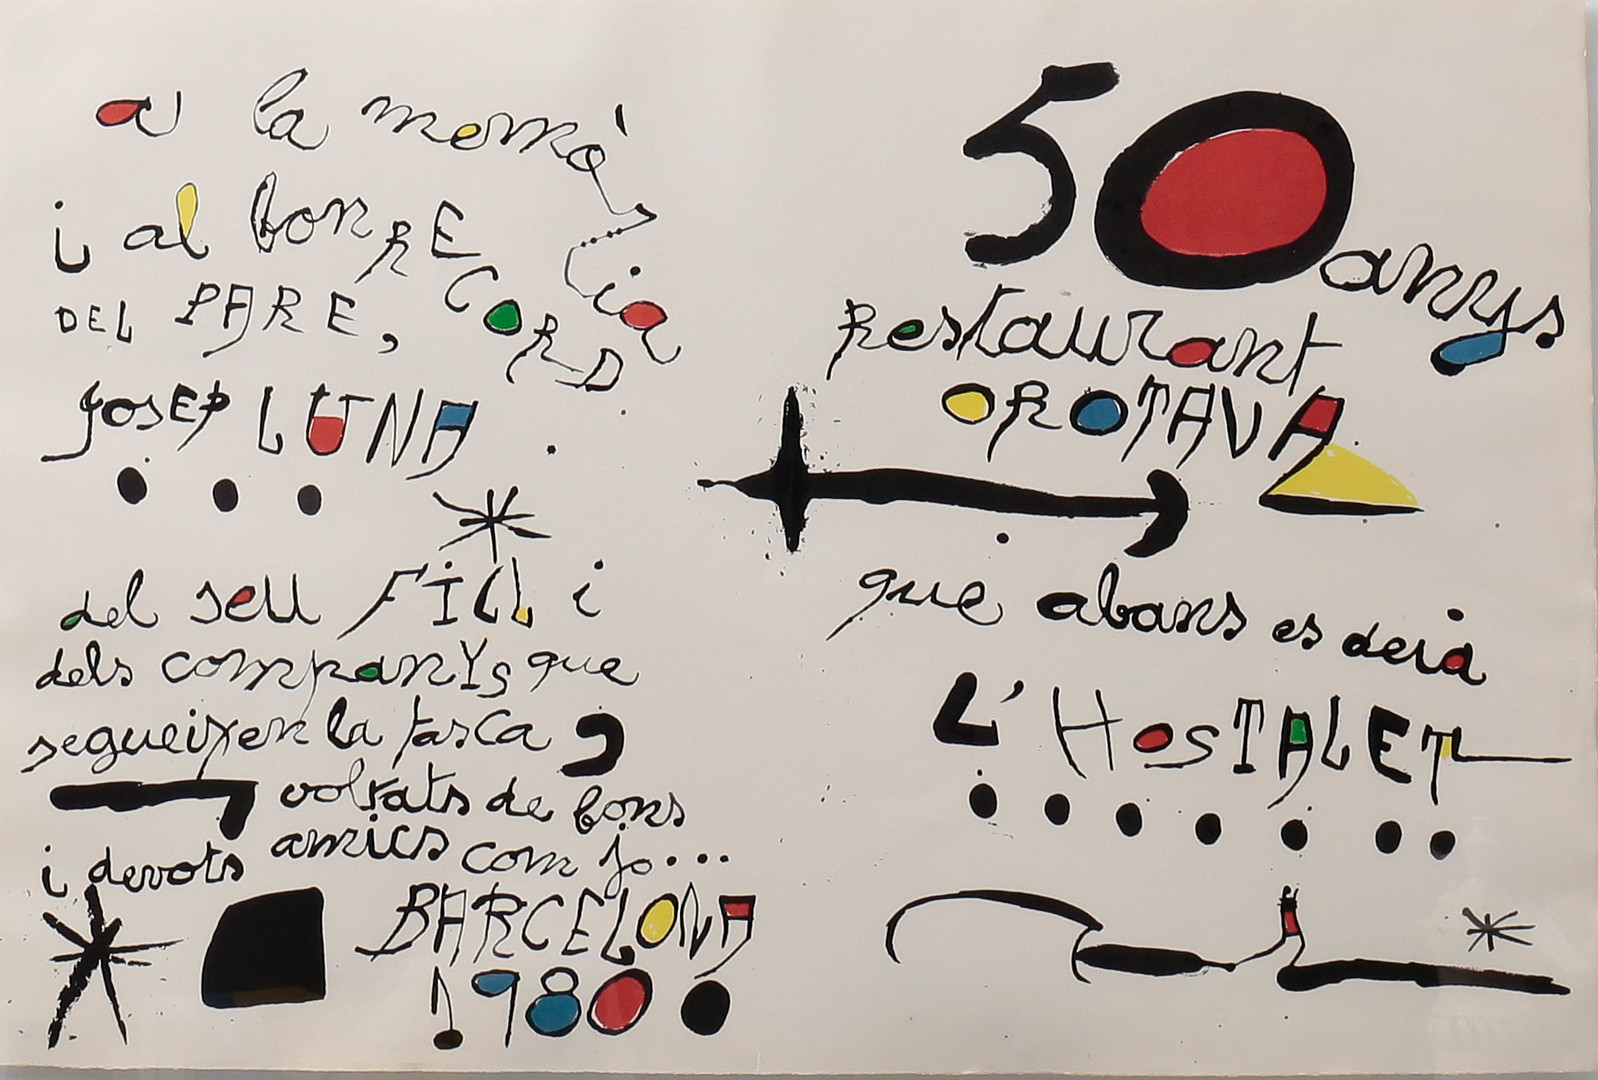 a la memòria
i al bon RECORD
DEL PARE,
JOSEP LUNA
del seu FILL i
dels companys que
segueixen la tasca
voltats de bons
i devots amics com jo...
BARCELONA
1980
50 anys
Restaurant
OROTAVA
que abans es deia
L'HOSTALET